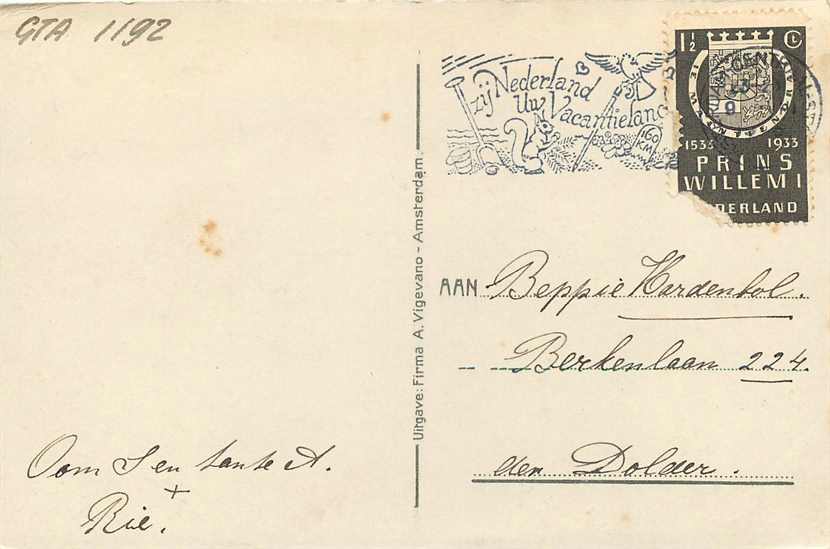 GTA 1192
zij Nederland
Uw Vacantieland
160
KM
1½ Ct
1533 1933
PRINS
WILLEM I
DERLAND
Uitgave: Firma A. Vigevano - Amsterdam.
AAN Beppie Hardenbol.
Berkenlaan 224.
den Dolder.
Oom J en tante A.
+
Rie.